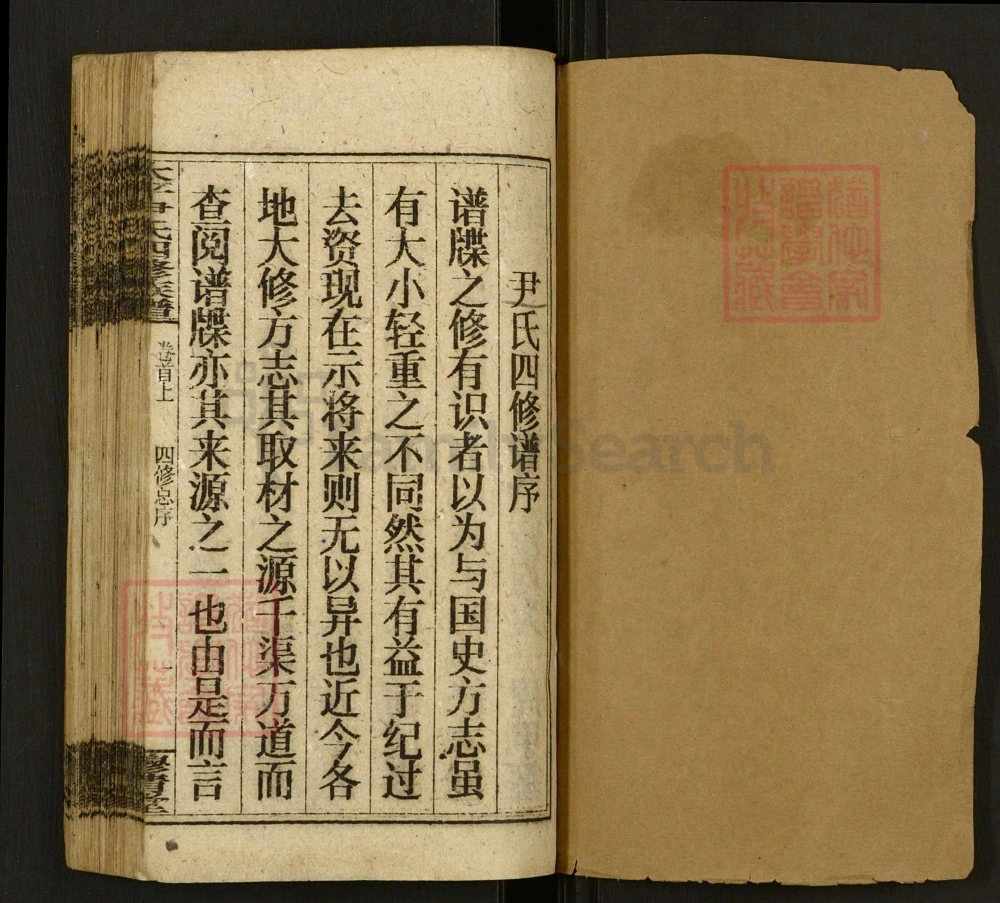 尹氏四修谱序
谱牒之修有识者以为与国史方志虽
有大小轻重之不同然其有益于纪过
去资现在示将来则无以异也近今各
地大修方志其取材之源千渠万道而
查阅谱牒亦其来源之一也由是而言
尹氏四修族谱
卷首上
四修总序
一
FamilySearch